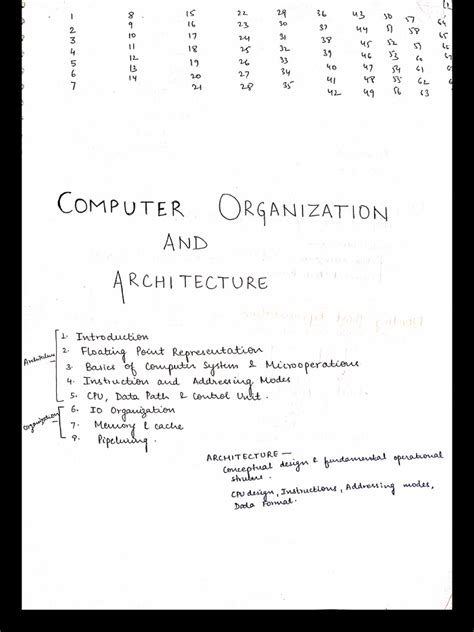 1 8 15 22 29 36 43 50 57
2 9 16 23 30 44 51 58
3 10 17 24 31 38 45 52 59
4 11 18 25 32 39 46 53 60
5 12 19 26 33 40 47 54 61
6 13 20 27 34 41 48 55 62
7 14 21 28 35 42 49 56 63
COMPUTER ORGANIZATION
AND
ARCHITECTURE
Architecture
1. Introduction
2. Floating Point Representation
3. Basics of Computer System & Microoperations
4. Instruction and Addressing Modes
5. CPU, Data Path & Control Unit.
Organization
6. IO Organization
7. Memory & cache
8. Pipelining.
ARCHITECTURE —
Conceptual design & fundamental operational
CPU design, Instructions, Addressing modes,
Data Format.